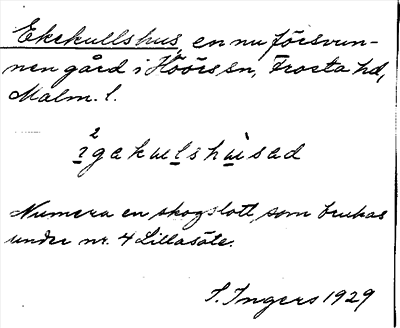 Ekekullshus, en nu försvun-
nen gård i Höörs sn, Frosta hd,
Malm. l.
2
ịgakuḷshụ̀sad
Numera en skogslott, som brukas
under nr. 4 Lillasäte.
I. Ingers 1929